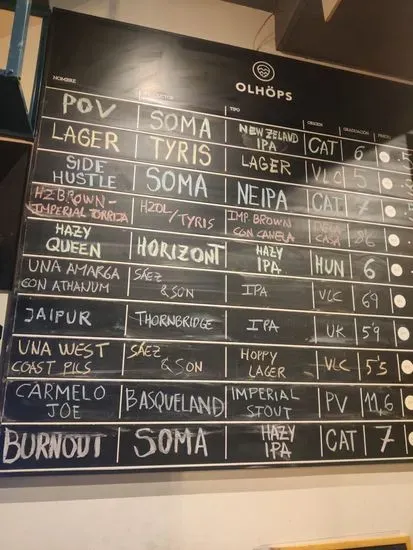 OLHÖPS
NOMBRE PRODUCTOR TIPO ORIGEN GRADUACIÓN PRECIO
POV SOMA NEW ZELAND IPA CAT 6
LAGER TYRIS LAGER VLC 5
SIDE HUSTLE SOMA NEIPA CAT 7
H2BROWN - IMPERIAL TORRIJA H2OL/TYRIS IMP. BROWN CON CANELA CASA 8'6
HAZY QUEEN HORIZONT HAZY IPA HUN 6
UNA AMARGA CON ATHANUM SÁEZ & SON IPA VLC 6'9
JAIPUR THORNBRIDGE IPA UK 5'9
UNA WEST COAST PILS SÁEZ & SON HOPPY LAGER VLC 5'5
CARMELO JOE BASQUELAND IMPERIAL STOUT PV 11,6
BURNOUT SOMA HAZY IPA CAT 7